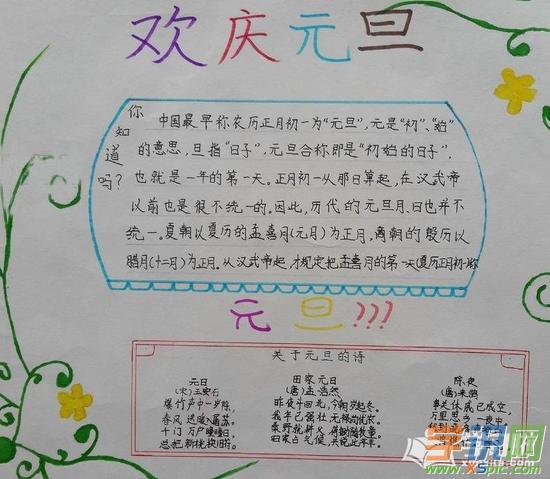 欢庆元旦
你知道吗?
中国最早称农历正月初一为“元旦”,元是“初”、“始”
的意思,旦指“日子”,元旦合称即是“初始的日子”,
也就是一年的第一天。正月初一从那日算起,在汉武帝
以前也是很不统一的。因此,历代的元旦月、日也并不
统一。夏朝以夏历的孟喜月(元月)为正月,商朝的殷历以
腊月(十二月)为正月。从汉武帝起,才规定把孟喜月的第一天(夏历正月初一)称
元旦???
关于元旦的诗
元日
(宋)王安石
爆竹声中一岁除,
春风送暖入屠苏。
千门万户曈曈日,
总把新桃换旧符。
田家元日
(唐)孟浩然
昨夜斗回北,今朝岁起东。
我年已强壮,无禄尚忧农。
桑野就耕父,荷锄随牧童。
田家占气候,共说此年丰。
除夜
(唐)来鹄
事关休戚已成空,
万里
学识网